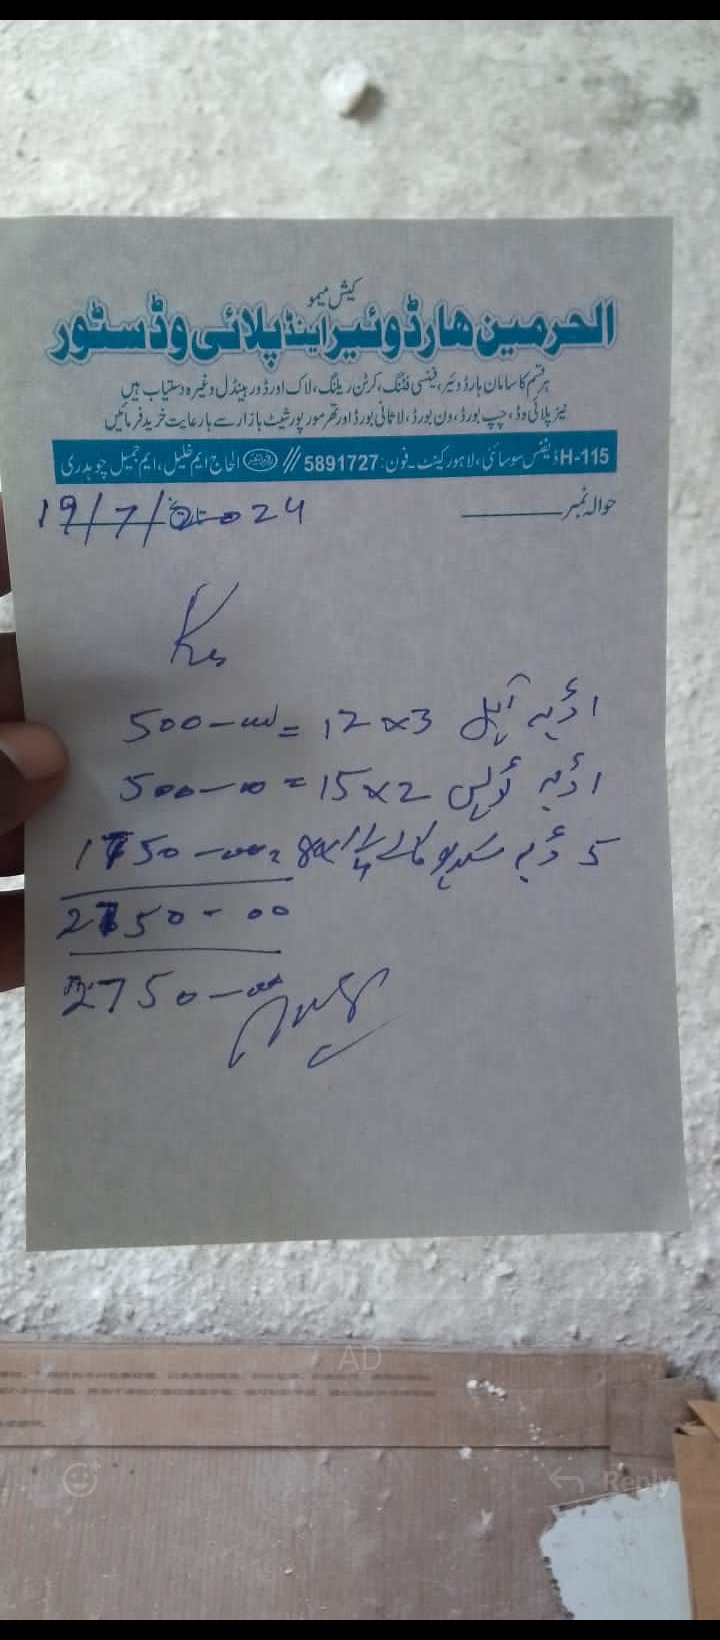 کیش میمو
الحرمین ھارڈوئیر اینڈ پلائی وڈ سٹور
ہر قسم کا سامان ہارڈوئیر، فینسی فٹنگ، کرٹن ریلنگ، لاک اور ڈور ہینڈل وغیرہ دستیاب ہیں
نیز پلائی وڈ، چپ بورڈ، ون بورڈ، لاثانی بورڈ اور تھرمور پور شیٹ بازار سے بارعایت خرید فرمائیں
H-115 ڈیفنس سوسائٹی، لاہور کینٹ۔ فون: 5891727 // الحاج ایم خلیل، ایم جمیل چوہدری
حوالہ نمبر
19/7/2024
1 ڈبہ 12x3 = 500-00
1 ڈبہ 15x2 = 500-00
5 ڈبہ سکریو کالے 8x1 1/4 = 1750-00
2750-00
2750-00
AD
Reply